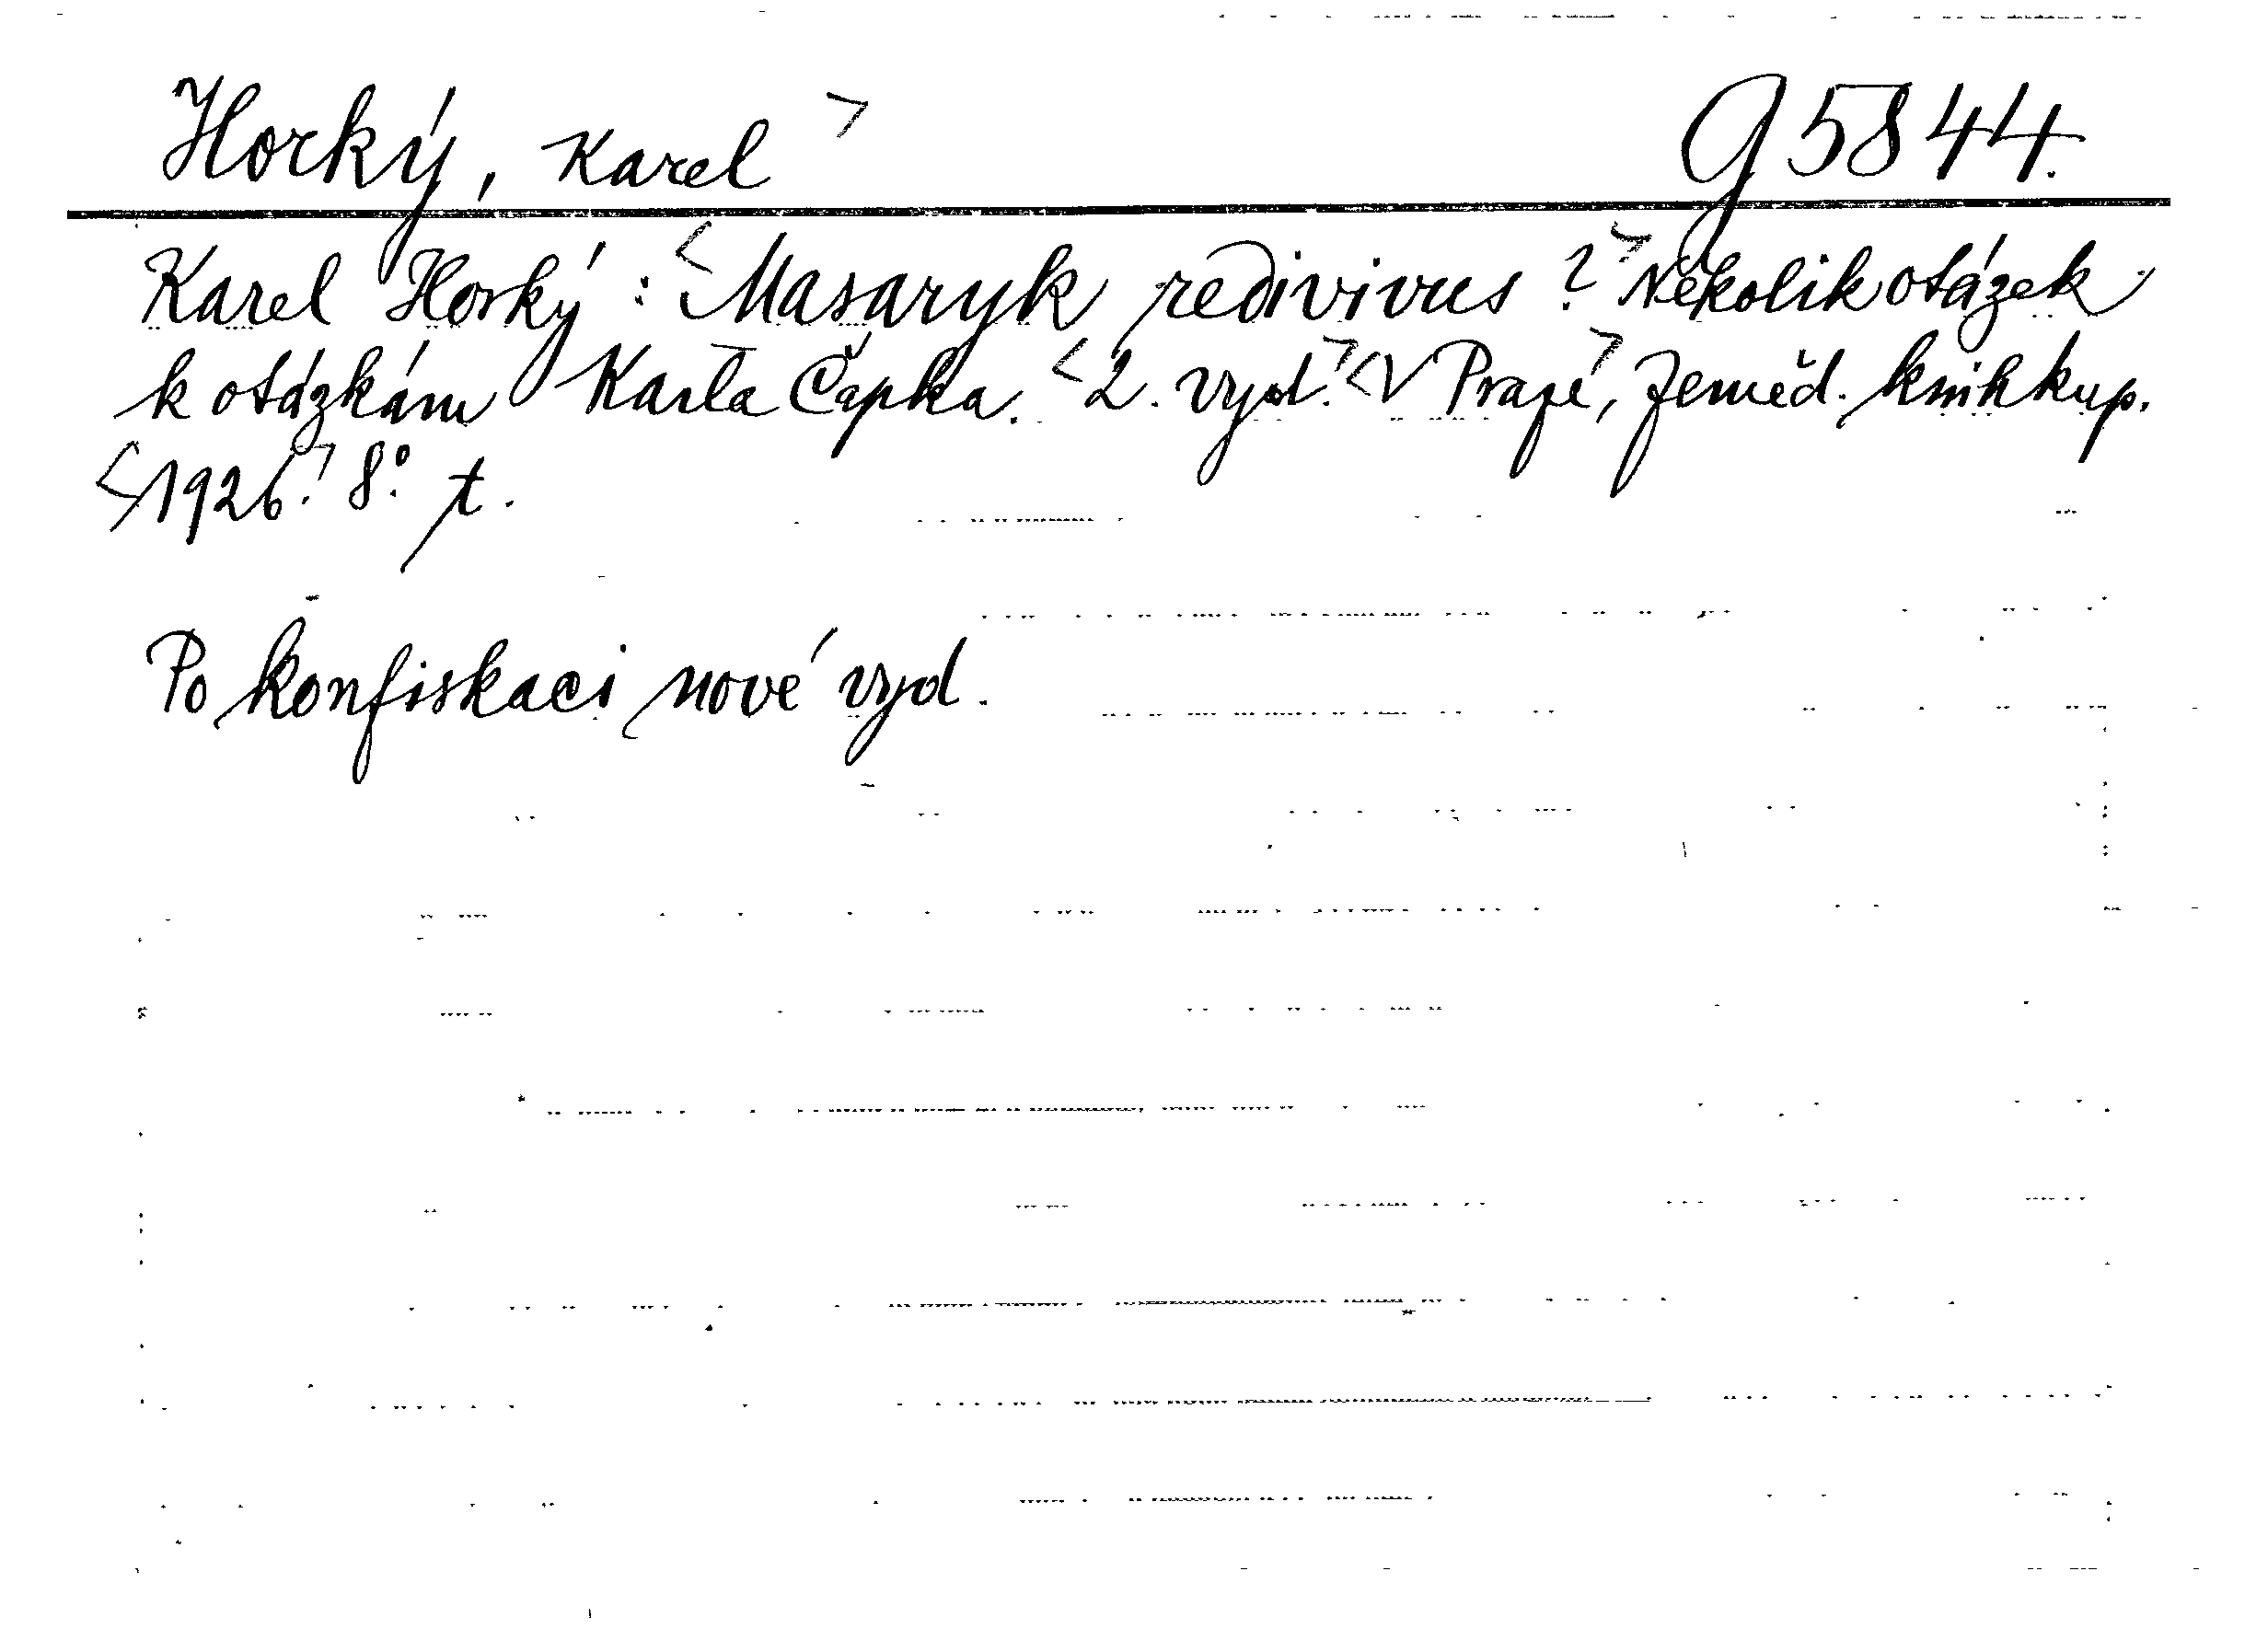 Horký, Karel > G 5844.
Karel Horký: <Masaryk redivivus?> Několik otázek
k otázkám Karla Čapka. <2. vyd.> <V Praze>, Zeměd. knihkup.
<1926.> 8°. t.
Po konfiskaci nové vyd.